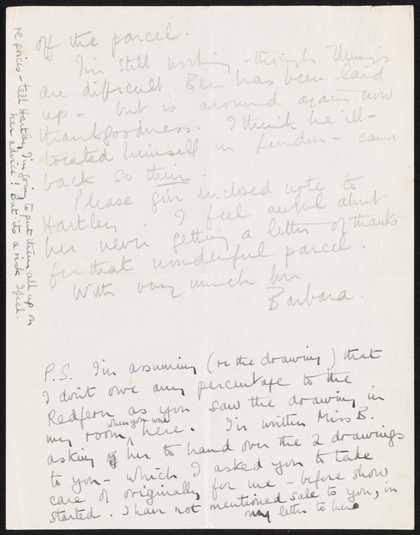 off the parcel.
I'm still working – through things
are difficult. Ben has been laid
up – but is around again now
thankgoodness. I think he ill–
located himself in London – came
back so thin.
Please give inclosed note to
Hartley. I feel awful about
her never getting a letter of thanks
for that wonderful parcel.
With very much love
Barbara.
P.S. I'm assuming (re the drawing) that
I don't owe any percentage to the
Redfern as you saw the drawing in
my room, when you were here. I'm written Miss B.
asking her to hand over the 2 drawings
to you – which I asked you to take
care of originally for me – before show
started. I have not mentioned sale to you, in
my letter to her
re prices – tell Hartley I'm going to put them all up on
her advice! But its a risk I feel.